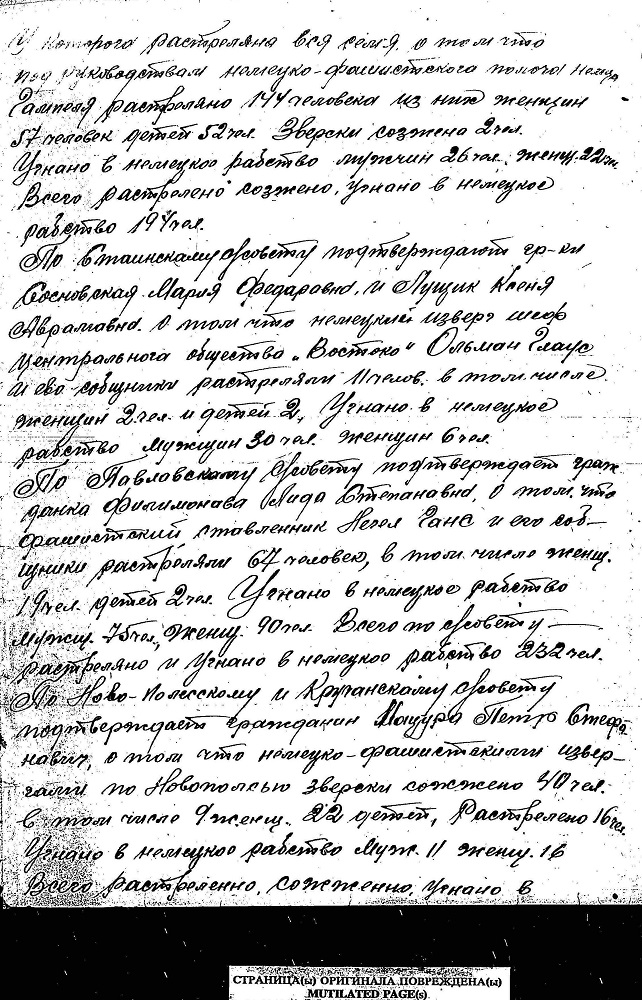 у которога растреляна вся семя, о том что
под руководствам немецко-фашистского
Гампеля растреляно 144 человека из них женщин
57 человек детей 52 чел. Зверски созжено 2 чел.
Угнано в немецкое рабство мужчин 26 чел. женщ. 22 чел.
Всего растрелено созжено, угнано в немецкое
рабство 194 чел.
По Стаинскому с/совету подтверждают гр-ки
Сосновская Мария Федаровна, и Пущик Ксеня
Аврамавна. О том что немецкий изверг шеф
центральнога общества „Востоко" Ольман Глаус
и ево собщники растреляли 11 челов. в том числе
женщин 2 чел. и детей 2, Угнано в немецкое
рабство мужщин 30 чел. женщин 6 чел.
По Павловскаму с/совету подтверждает граж
данка Филимонава Лида Степанавна, о том, что
фашистский ставленник Негел Ганс и его соб-
щники растреляли 67 человек, в том числе женщ.
19 чел. детей 2 чел. Угнано в немецкое рабство
мужщ. 75 чел, женщ. 90 чел. Всего по с/совету —
растреляно и угнано в немецкое рабство 232 чел.
По Ново-Полсскому и Круганскому с/совету
подтверждает гражданин Мацура Петр Стефа
навич, о том что немецко-фашистскими извер-
гами по Новополсью зверски сожжено 40 чел.
в том числе 9 женщ. 22 детей, Растрелено 16 чел.
Угнано в немецкое рабство Муж. 11 женщ. 16
Всего растреленно, сожженно, угнано в
СТРАНИЦА(ы) ОРИГИНАЛА ПОВРЕЖДЕНА(ы)
MUTILATED PAGE(s)